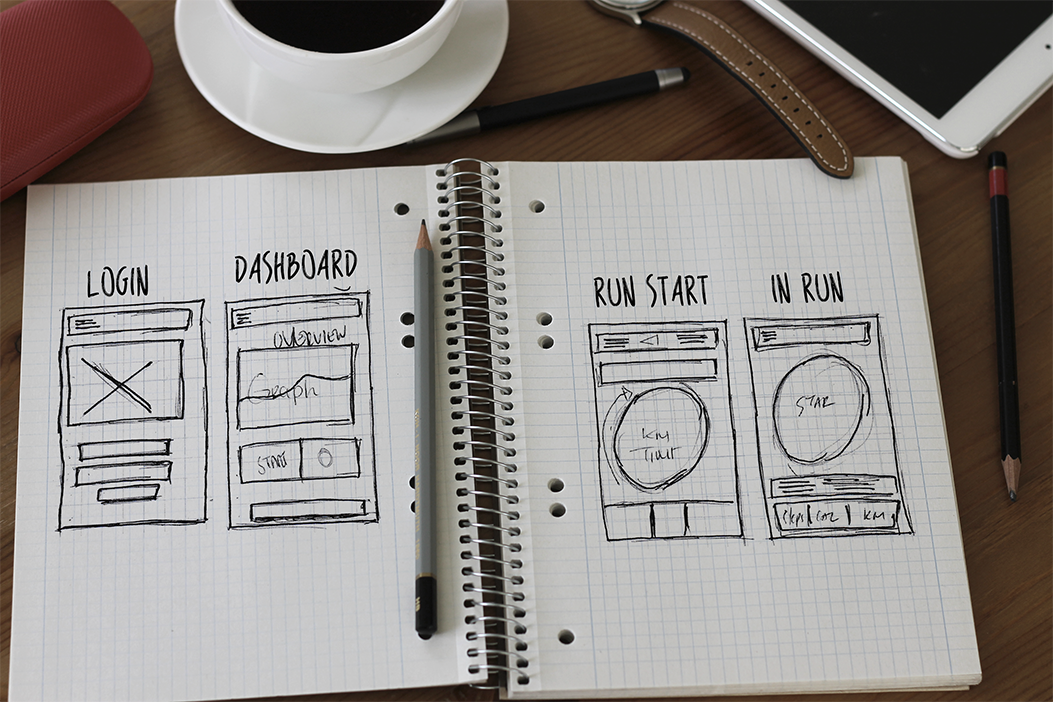 LOGIN
DASHBOARD
OVERVIEW
Graph
START
RUN START
IN RUN
KM
STAR
KM